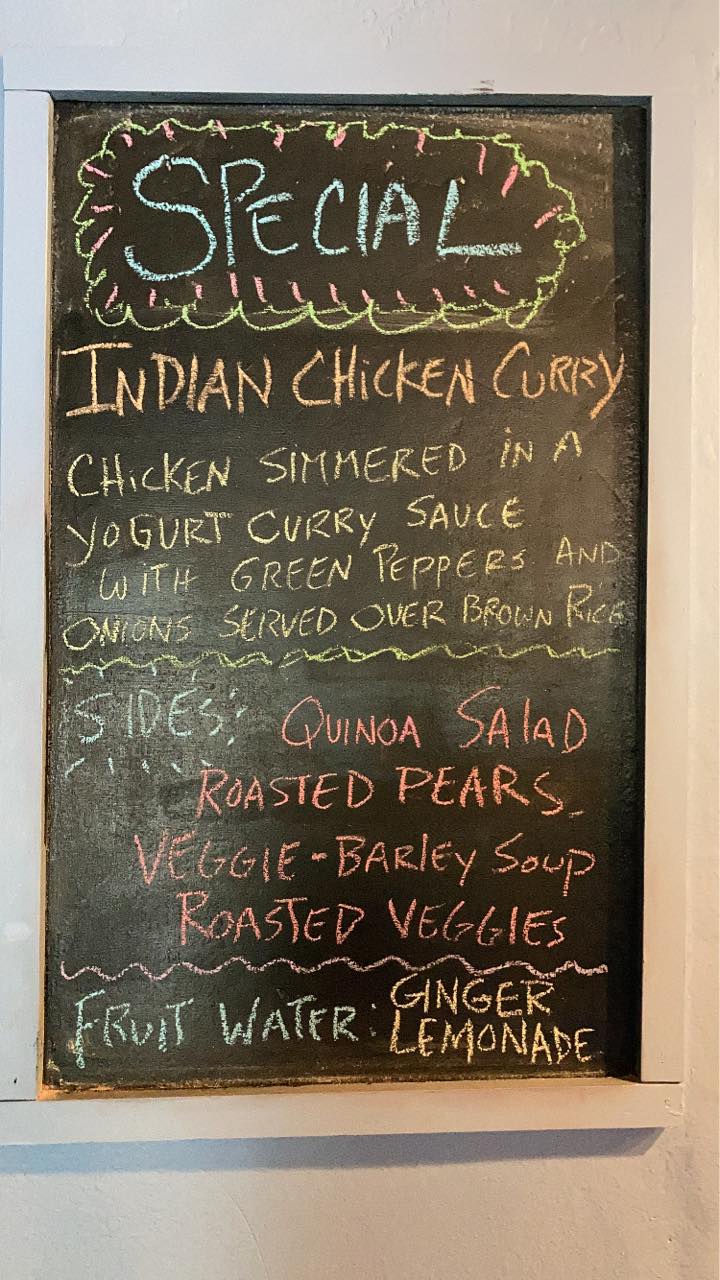 SPECIAL
INDIAN CHiCKEN CURRY
CHiCKEN SIMMERED iN A
YOGURT CURRY SAUCE
WITH GREEN PEPPERS AND
ONIONS SERVED OVER BROWN RICE
SIDES: QUINOA SAlAD
ROASTED PEARS
VEGGIE-BARlEY SOUP
ROASTED VEGGIES
FRUIT WATER: GINGER
LEMONADE